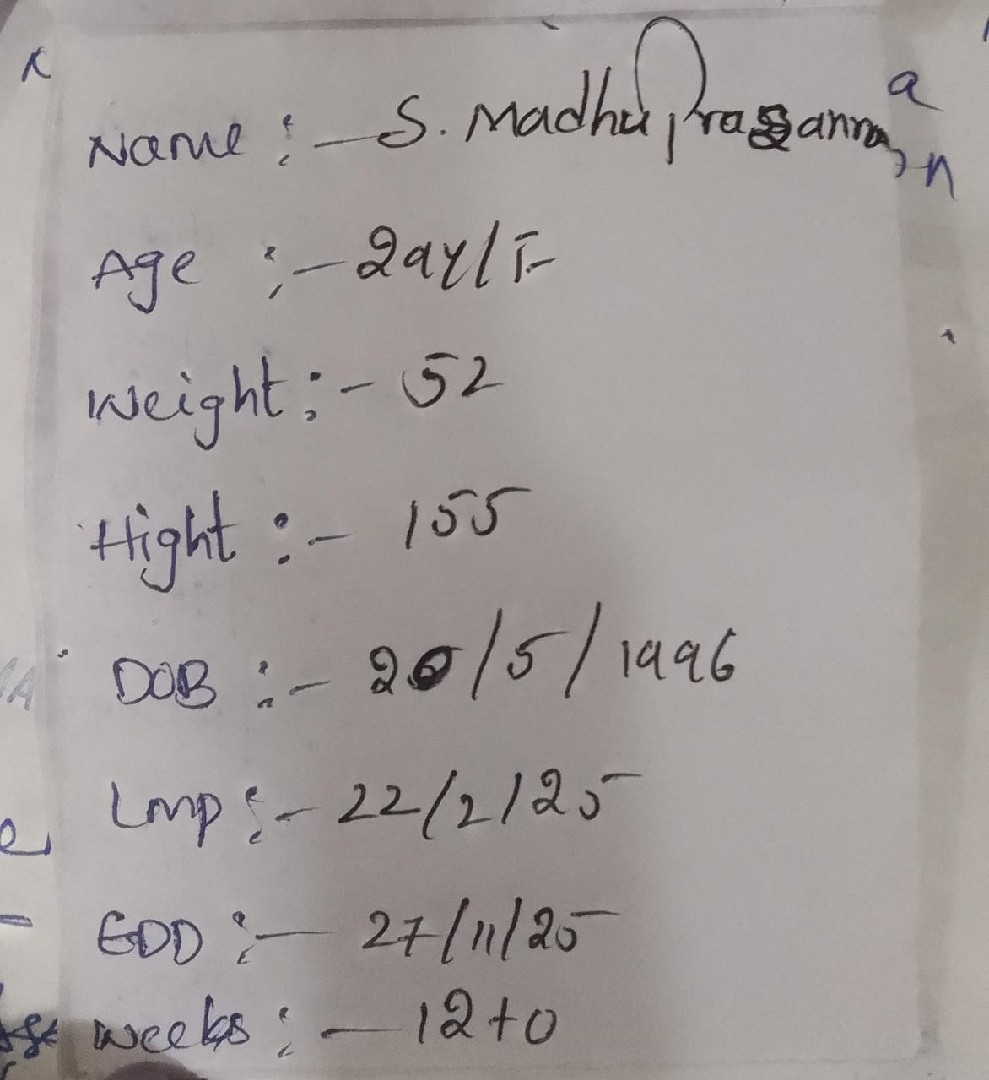 Name :- S. Madhu Prasanna
Age :- 29Y/F
Weight :- 52
Hight :- 155
DOB :- 20/5/1996
Lmp :- 22/2/25
EDD :- 27/11/25
weeks :- 12+0